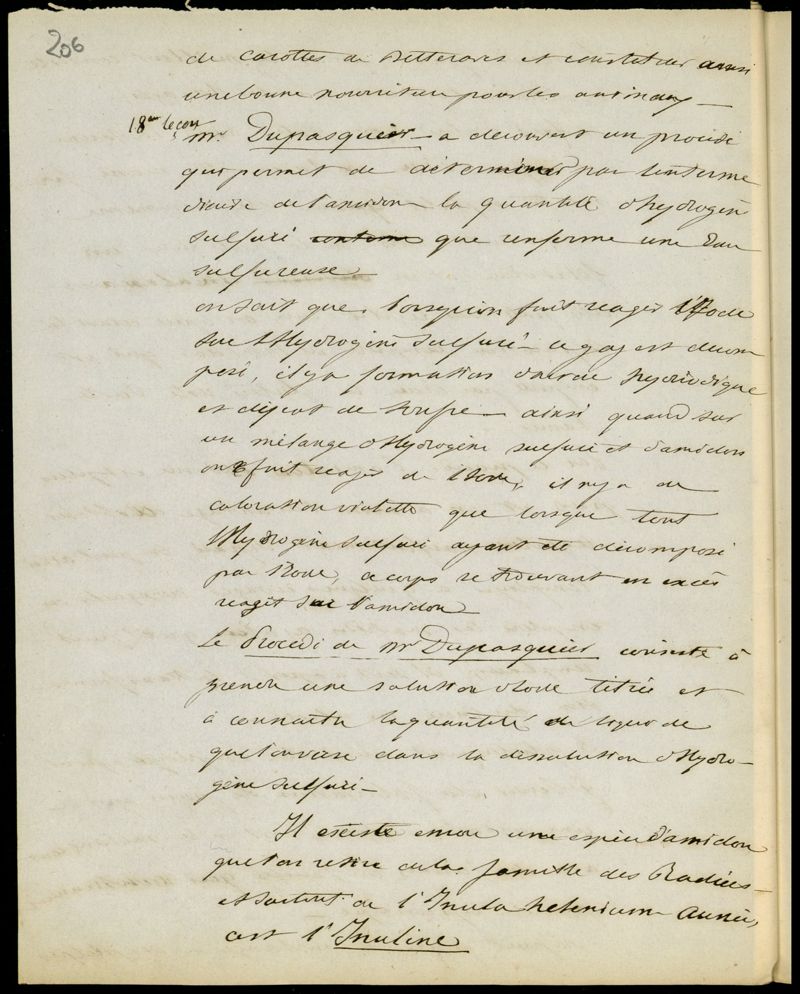 206
de carottes de Betteraves et constituer aussi
une bonne nourriture pour les animaux —
18me leçon
Mr Dupasquier a decouvert un procédé
qui permet de determiner par l'enterme
diaire de l'amidon la quantité d'hydrogène
sulfuré contenu que renferme une Eau
sulfureuse —
on sait que lorsqu'on fait reagir l'Iode
sur l'Hydrogène sulfuré — ce gaz est decom
posé, il y a formation d'acide hydriodique
et depot de soufre — ainsi quand sur
un mélange d'Hydrogène sulfuré et d'amidon
on fait reagir de l'Iode, il n'y a de
coloration violette que lorsque tout
l'Hydrogène sulfuré ayant été décomposé
par l'Iode, ce corps se trouvant en excès
reagit sur l'amidon
Le Procédé de Mr Dupasquier consiste à
prendre une solution d'Iode titrée et
à connaitre la quantité de liquide
que l'on verse dans la dissolution d'Hydro—
gène sulfuré —
Il existe encore une espèce d'amidon
que l'on retire de la famille des Radiées —
et surtout de l'Inula helenium Aunée,
c'est l'Inuline